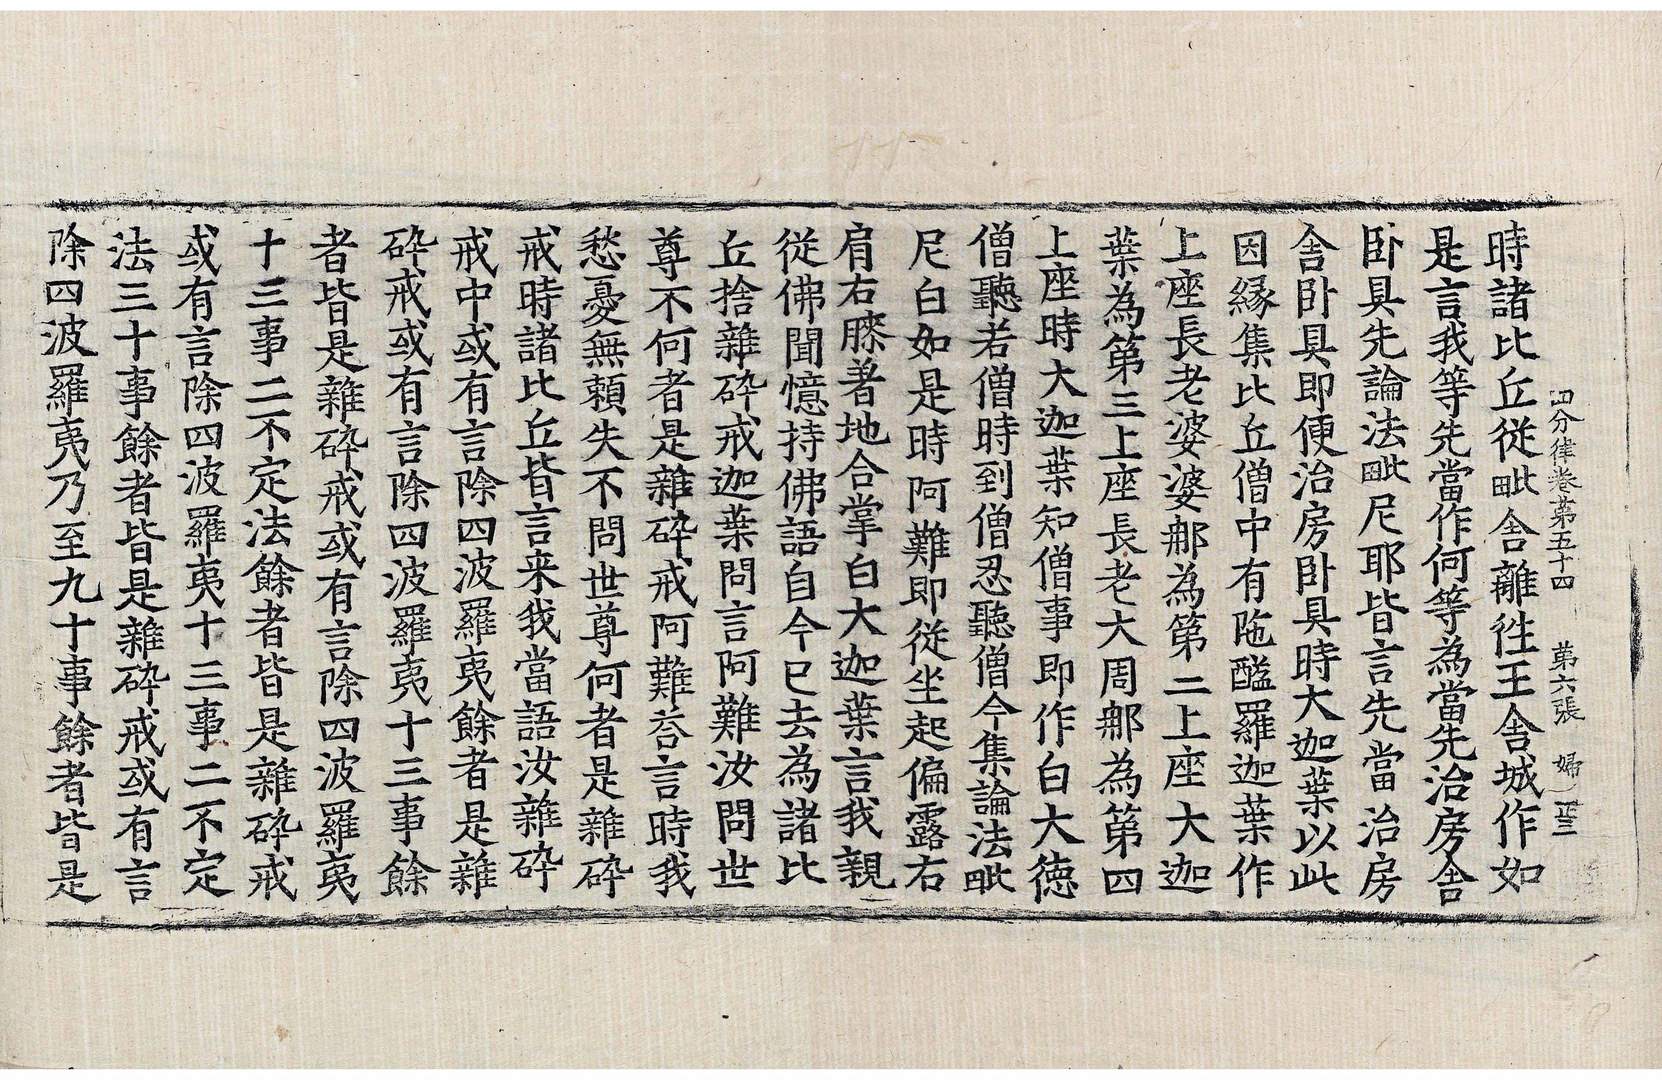 四分律卷第五十四　第六張　婦
時諸比丘從毗舍離徃王舍城作如
是言我等先當作何等為當先治房舍
卧具先論法毗尼耶皆言先當治房
舍卧具即便治房卧具時大迦葉以此
因縁集比丘僧中有陁醯羅迦葉作
上座長老婆婆那為第二上座大迦
葉為第三上座長老大周那為第四
上座時大迦葉知僧事即作白大德
僧聽若僧時到僧忍聽僧今集論法毗
尼白如是時阿難即從坐起偏露右
肩右膝著地合掌白大迦葉言我親
從佛聞憶持佛語自今已去為諸比
丘捨雜碎戒迦葉問言阿難汝問世
尊不何者是雜碎戒阿難荅言時我
愁憂無賴失不問世尊何者是雜碎
戒時諸比丘皆言来我當語汝雜碎
戒中或有言除四波羅夷餘者是雜
碎戒或有言除四波羅夷十三事餘
者皆是雜碎戒或有言除四波羅夷
十三事二不定法餘者皆是雜碎戒
或有言除四波羅夷十三事二不定
法三十事餘者皆是雜碎戒或有言
除四波羅夷乃至九十事餘者皆是